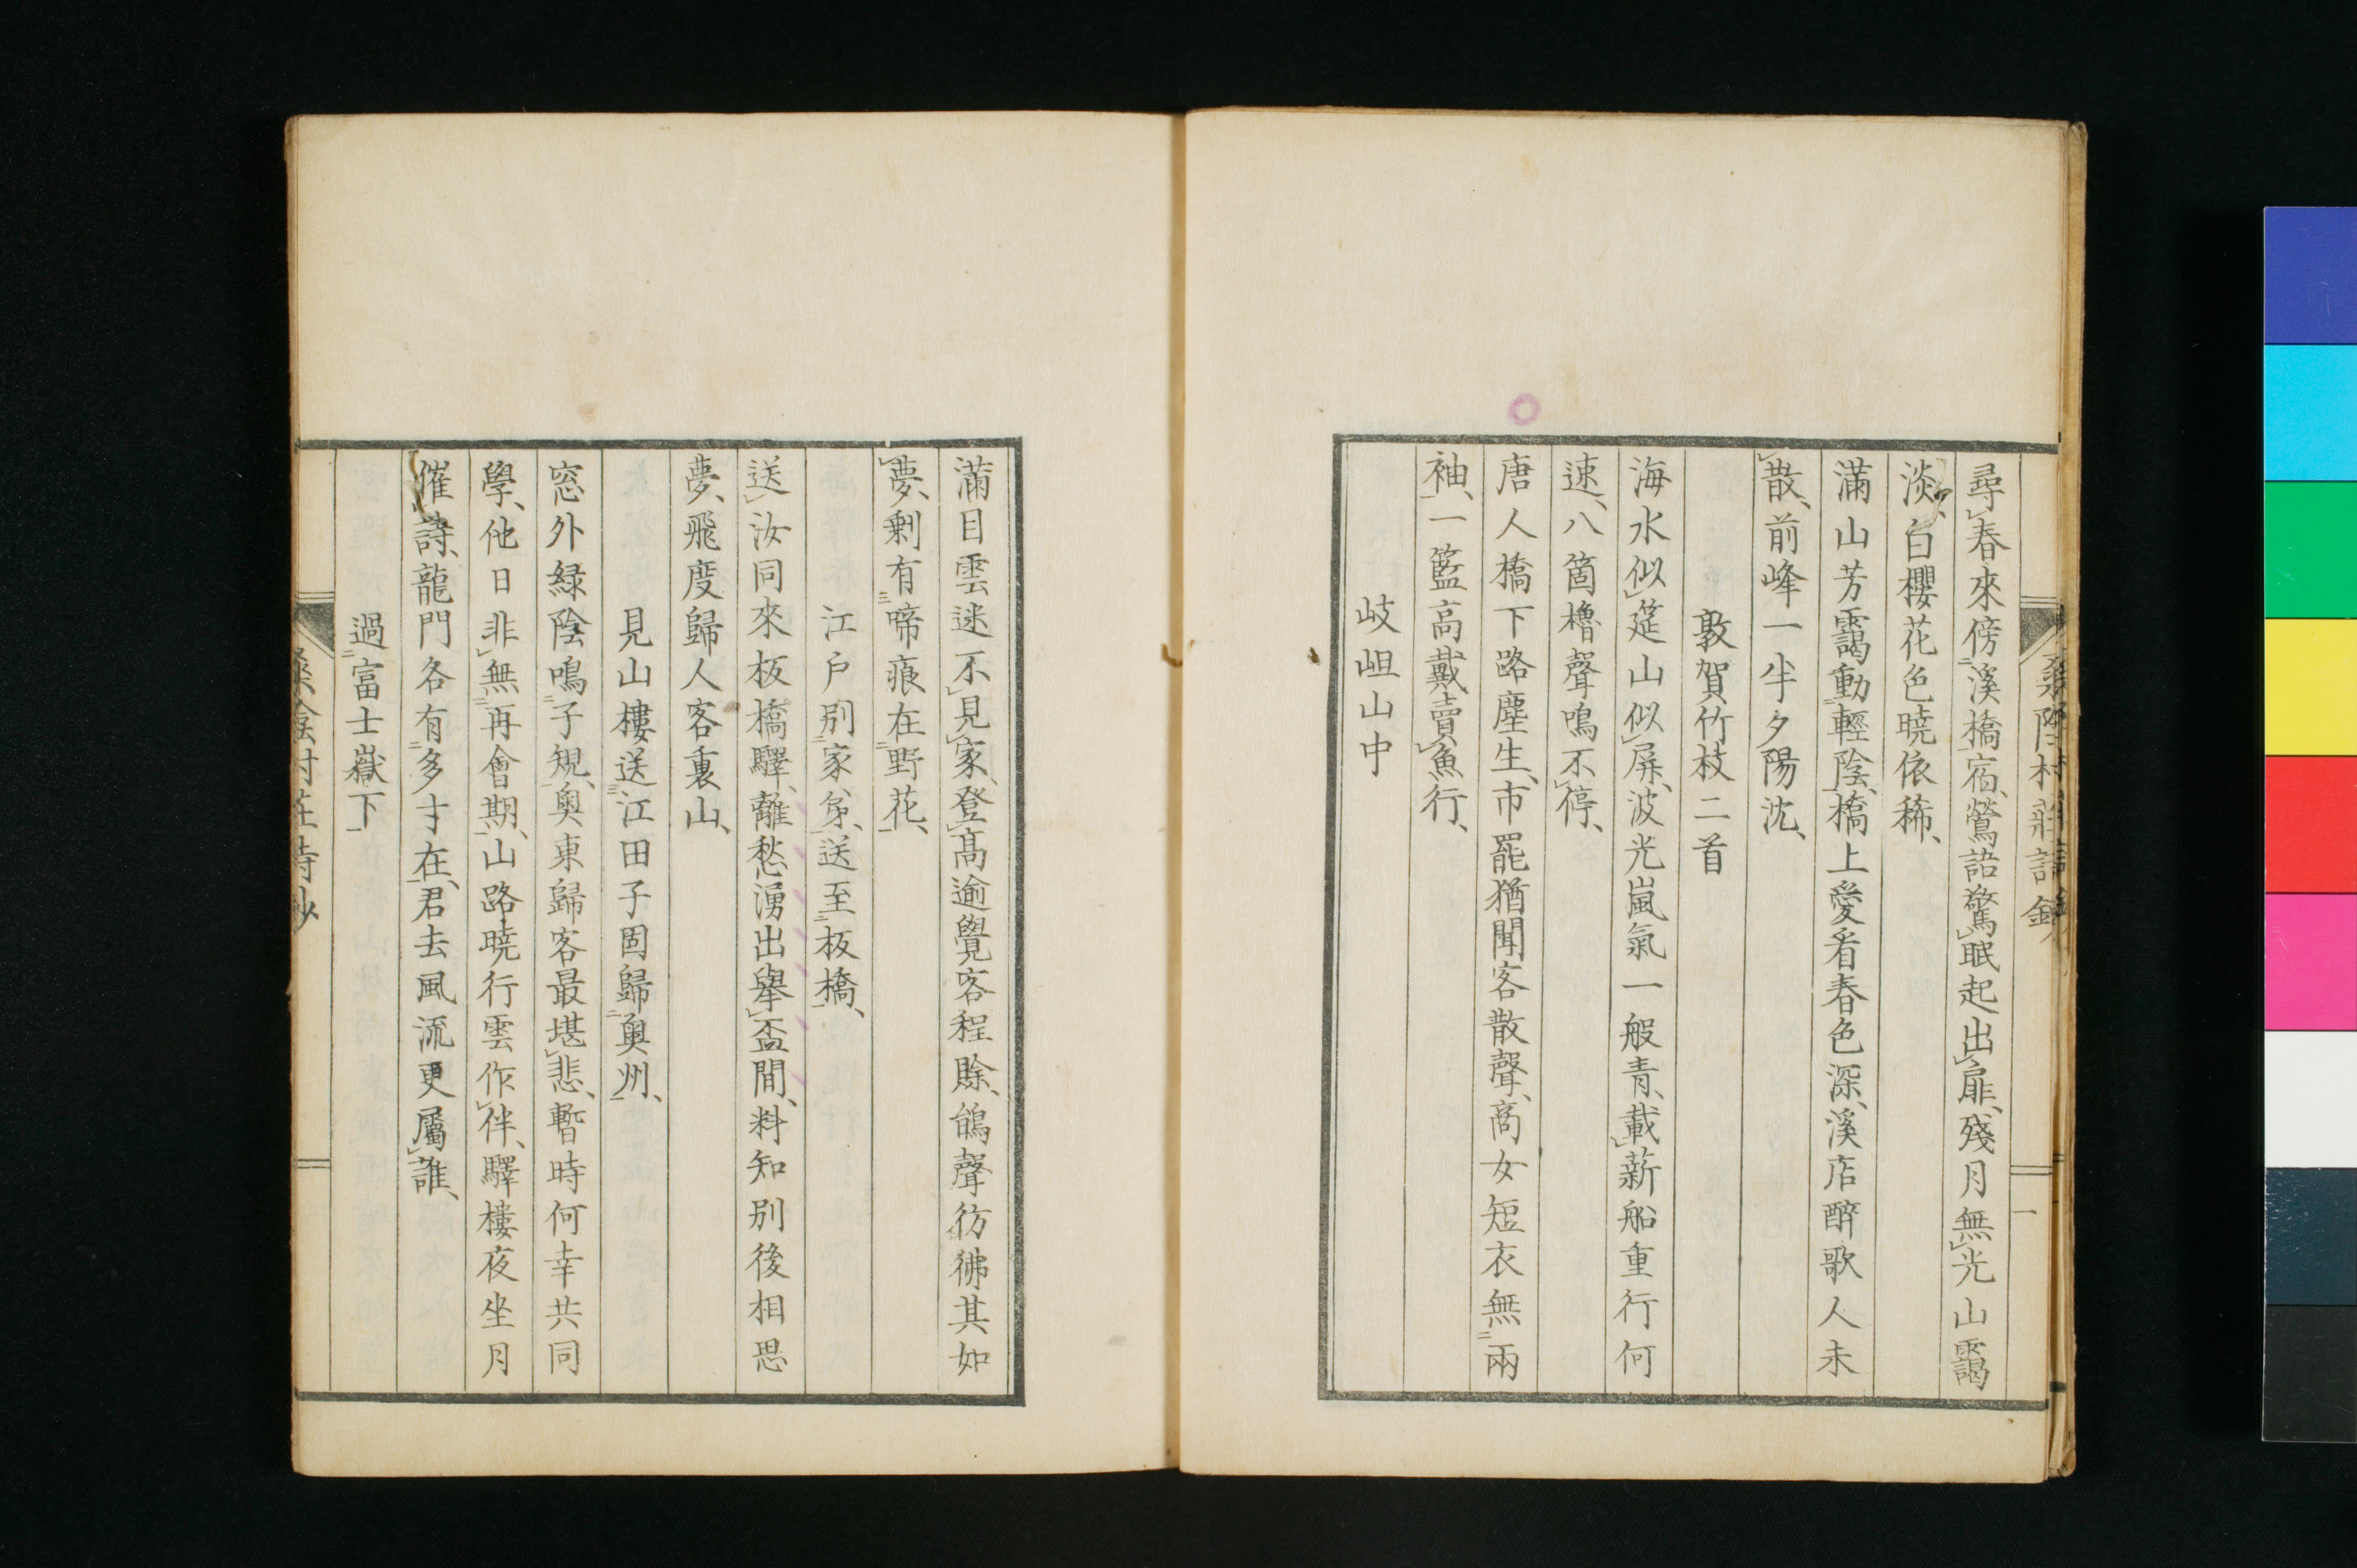 桑陰村莊詩鈔
一
尋春來傍溪橋宿、鶯語驚眠起出扉、殘月無光山靄
淡、白櫻花色曉依稀、
滿山芳靄動輕陰、橋上愛看春色深、溪店醉歌人未
散、前峰一半夕陽沈、
敦賀竹枝二首
海水似筵山似屏、波光嵐氣一般青、載薪船重行何
速、八箇櫓聲鳴不停、
唐人橋下路塵生、市罷猶聞客散聲、商女短衣無兩
袖、一籃高戴賣魚行、
岐岨山中
滿目雲迷不見家、登高逾覺客程賒、鵑聲彷彿其如
夢、剩有啼痕在野花、
江戶別家弟、送至板橋、
送汝同來板橋驛、離愁湧出舉盃間、料知別後相思
夢、飛度歸人客裏山、
見山樓送江田子固歸奧州、
窓外綠陰鳴子規、奧東歸客最堪悲、暫時何幸共同
學、他日非無再會期、山路曉行雲作伴、驛樓夜坐月
催詩、龍門各有多才在、君去風流更屬誰、
過富士嶽下
桑陰村莊詩鈔